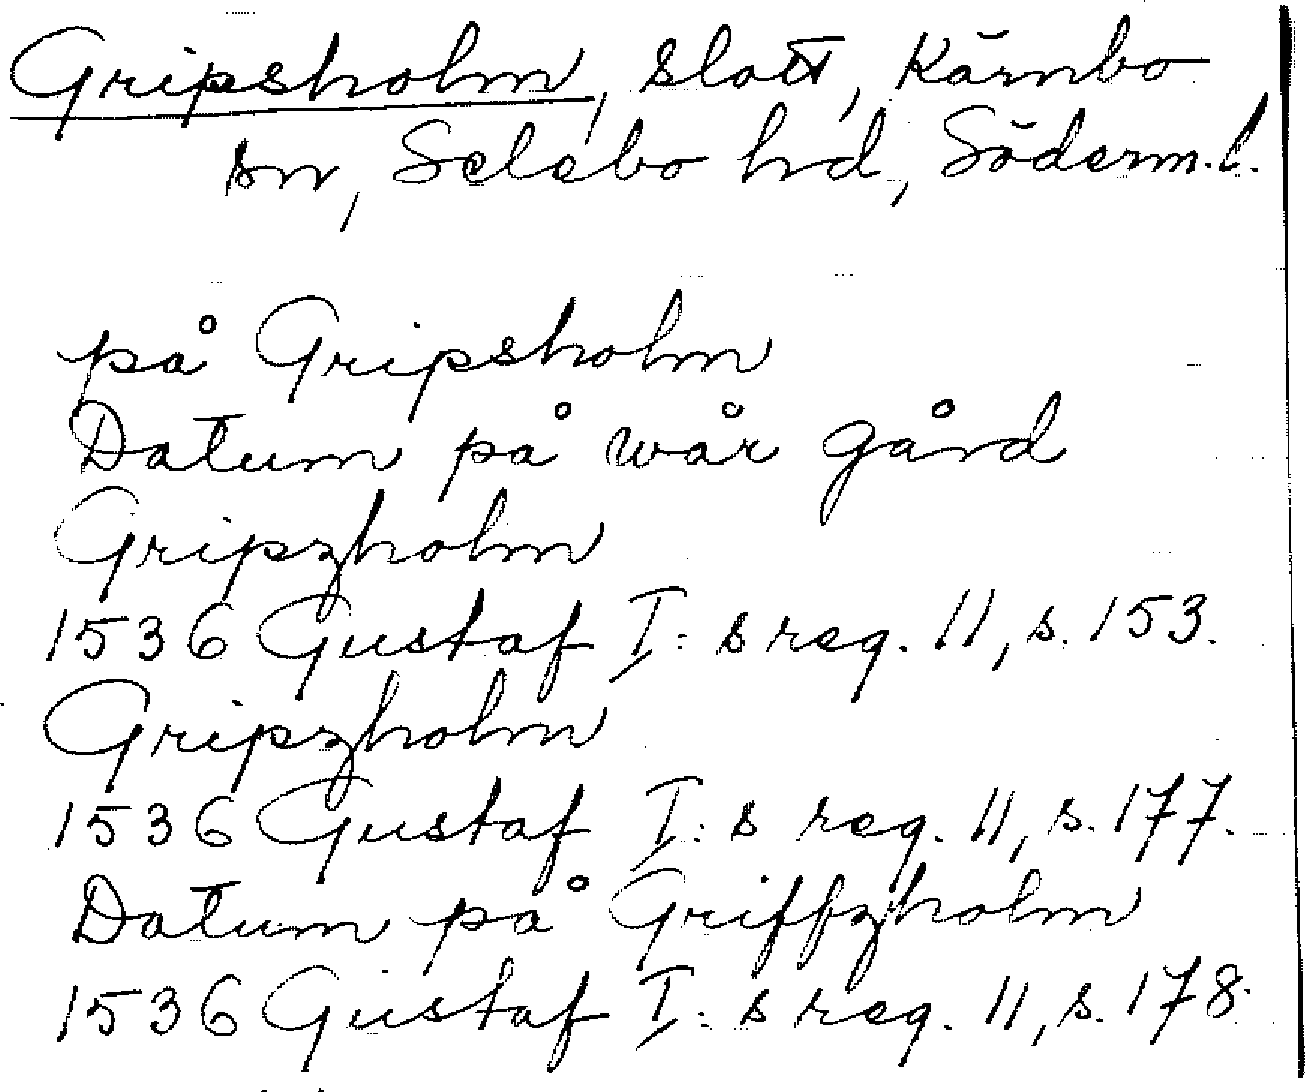 Gripsholm, slott, Kärnbo
sn, Selebo hd, Söderm.l.
på Gripsholm
Datum på wår gård
Gripzholm
1536 Gustaf I:s reg. 11, s. 153.
Gripzholm
1536 Gustaf I:s reg. 11, s. 177.
Datum på Griffzholm
1536 Gustaf I:s reg. 11, s. 178.